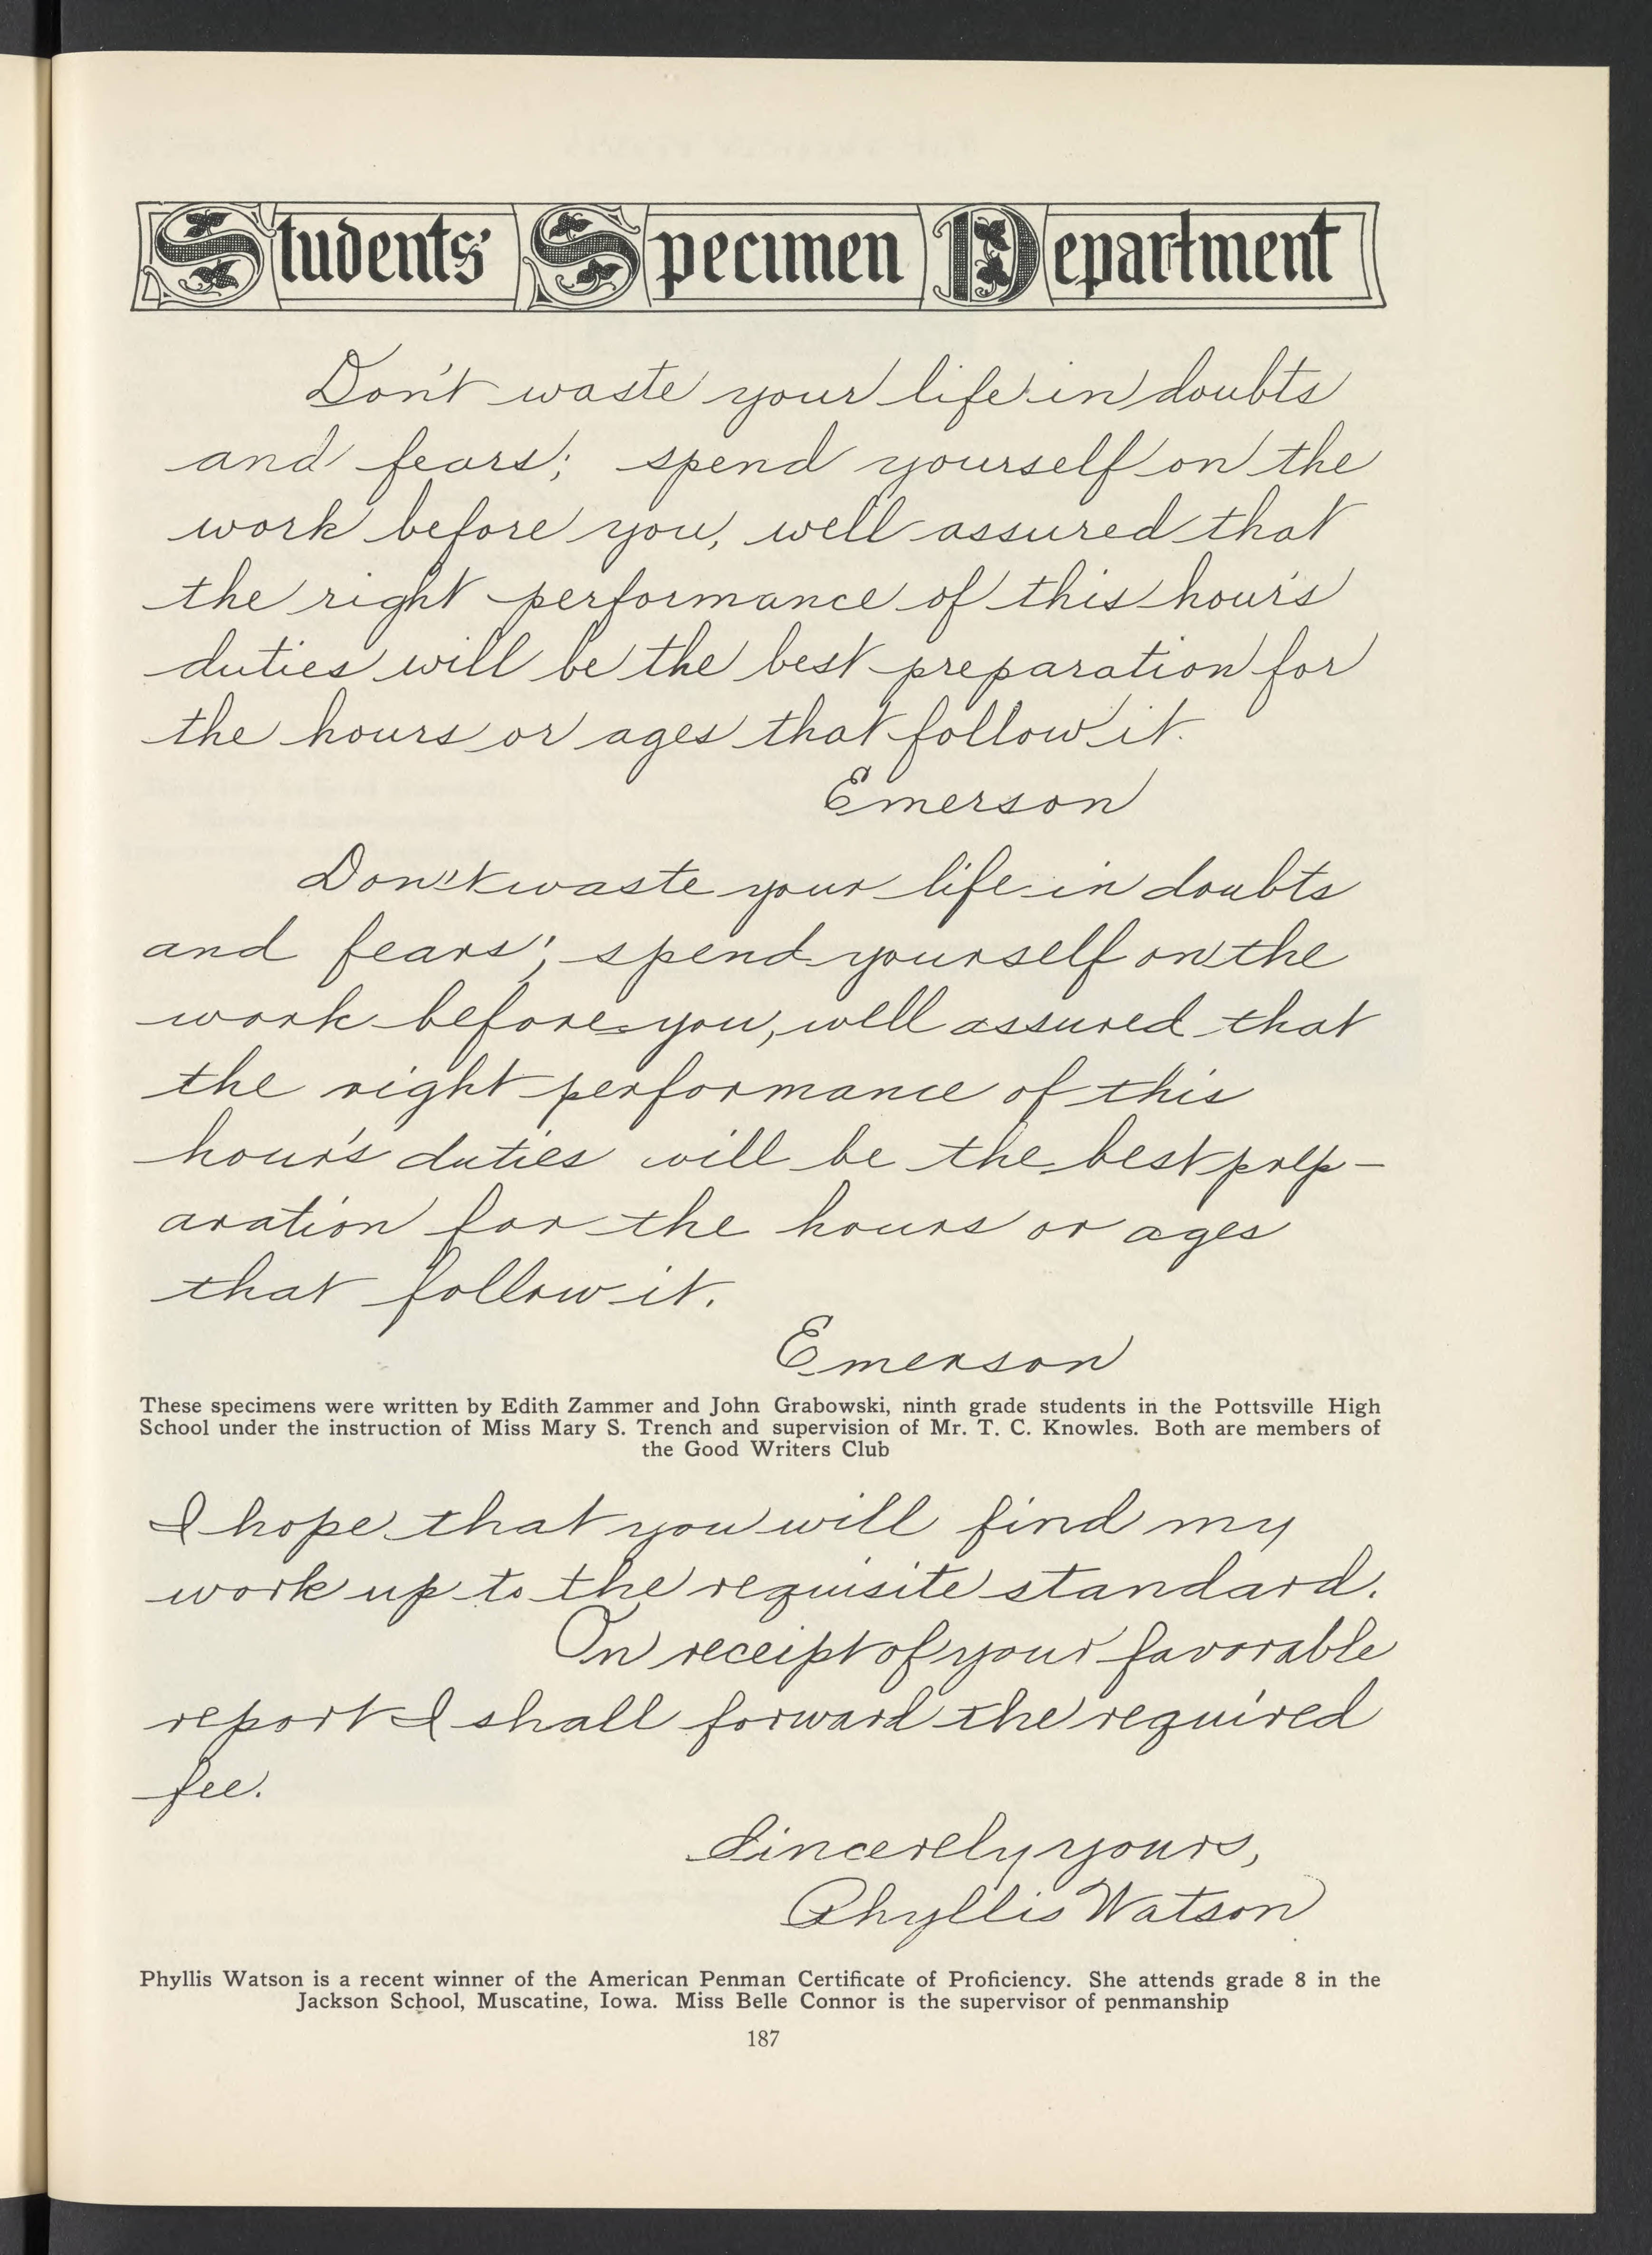 Students' Specimen Department
Don't waste your life in doubts
and fears; spend yourself on the
work before you, well assured that
the right performance of this hour's
duties will be the best preparation for
the hours or ages that follow it.
Emerson
Don't waste your life in doubts
and fears; spend yourself on the
work before you, well assured that
the right performance of this
hour's duties will be the best prep-
aration for the hours or ages
that follow it.
Emerson
These specimens were written by Edith Zammer and John Grabowski, ninth grade students in the Pottsville High
School under the instruction of Miss Mary S. Trench and supervision of Mr. T. C. Knowles. Both are members of
the Good Writers Club
I hope that you will find my
work up to the requisite standard.
On receipt of your favorable
report I shall forward the required
fee.
Sincerely yours,
Phyllis Watson
Phyllis Watson is a recent winner of the American Penman Certificate of Proficiency. She attends grade 8 in the
Jackson School, Muscatine, Iowa. Miss Belle Connor is the supervisor of penmanship
187